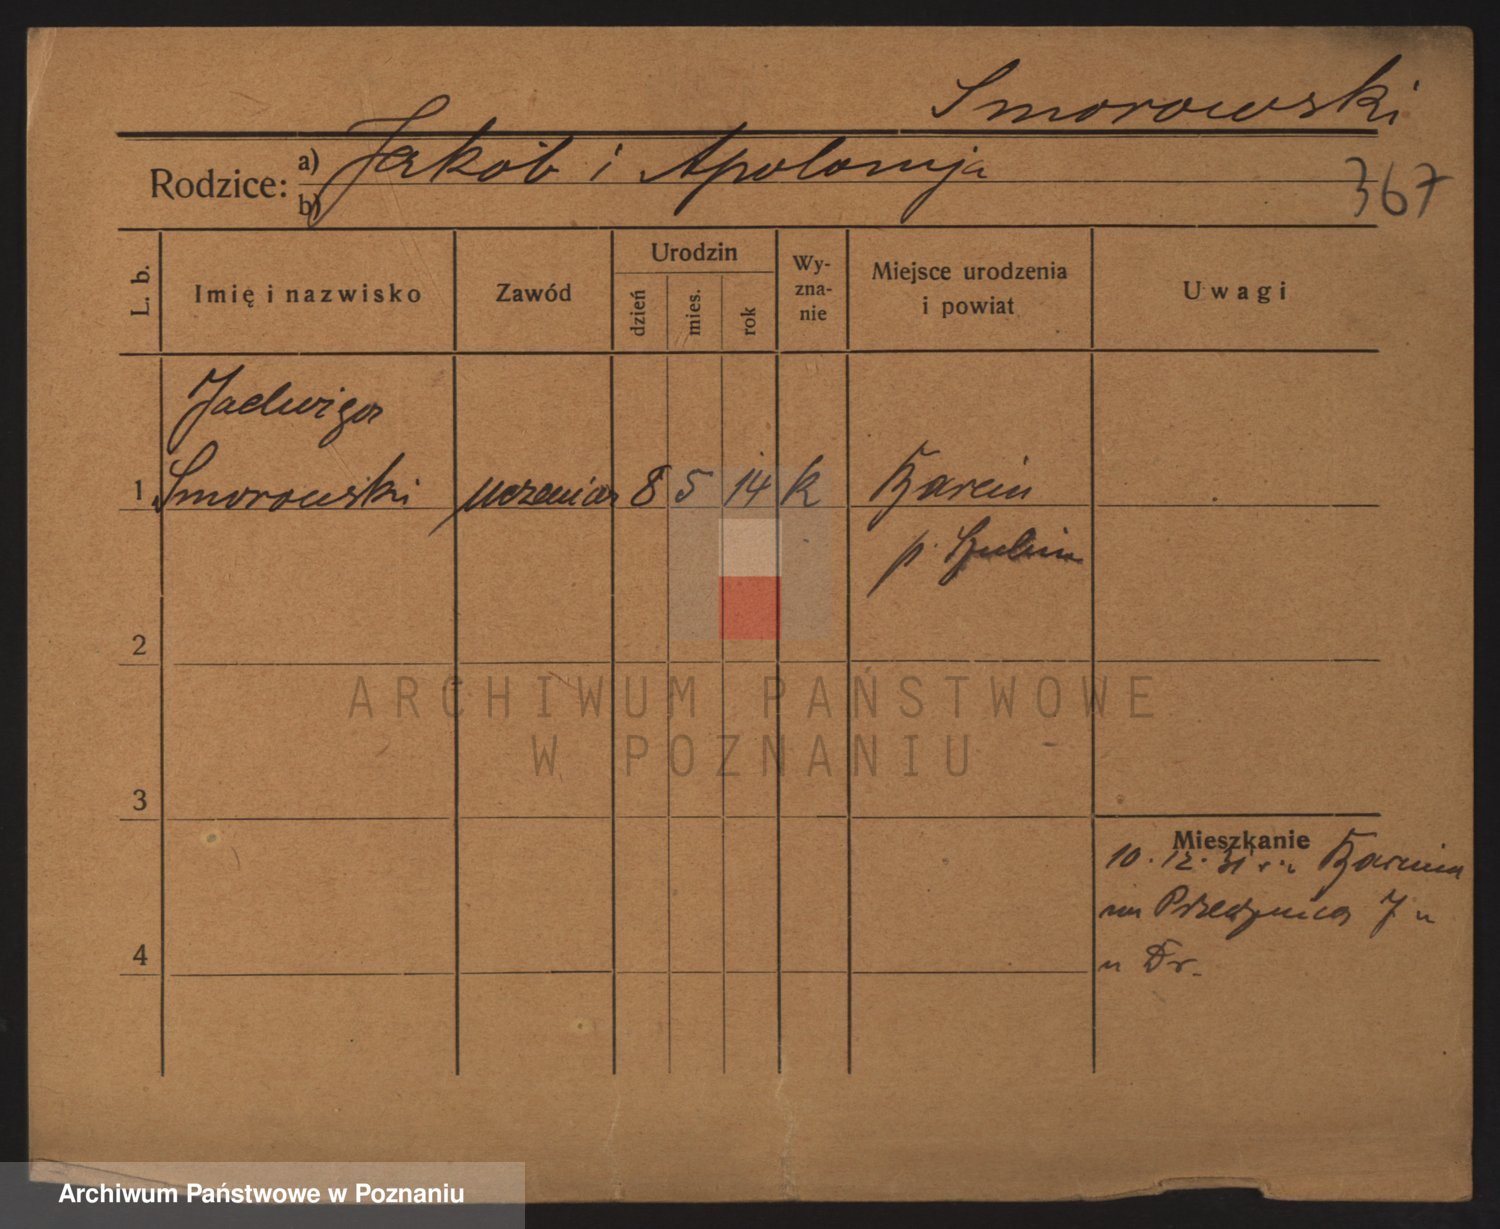 Smorowski
Rodzice: a) Jakób i Apolonja
b)
367
L. b.
Imię i nazwisko
Zawód
Urodzin
dzień
mies.
rok
Wy-
zna-
nie
Miejsce urodzenia
i powiat
Uwagi
Jadwiga
1 Smorowski uczenica 8 5 14 k Barcin
p. Szubin
2
ARCHIWUM PAŃSTWOWE
W POZNANIU
3
Mieszkanie
10. 12. 31 Barcina
na 7
Dr.
4
Archiwum Państwowe w Poznaniu